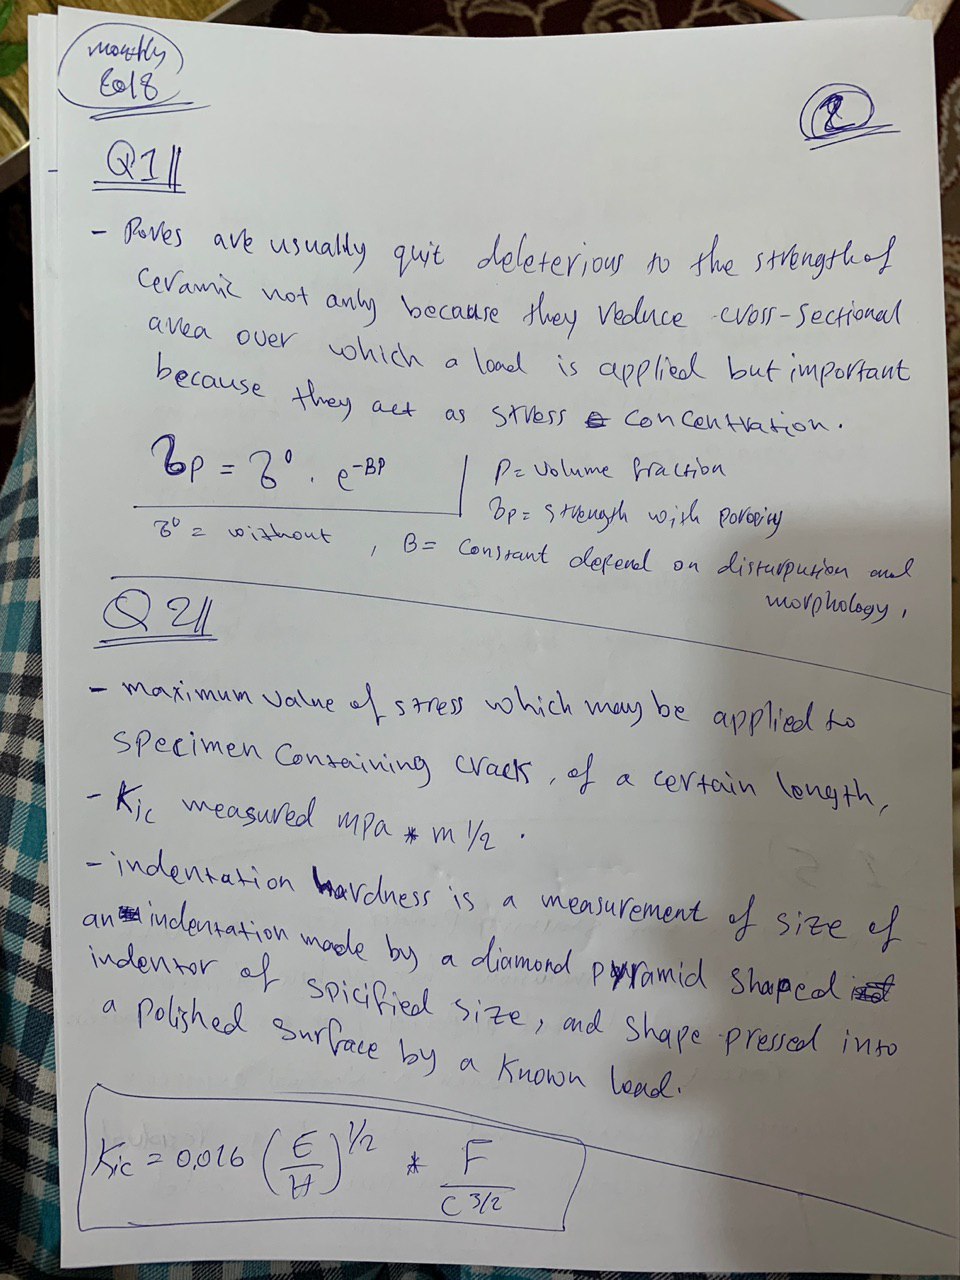 monthly
2018
2
Q1
- Pores are usually quit deleterious to the strength of
ceramic not only because they reduce cross-sectional
area over which a load is applied but important
because they act as stress concentration.
σp = σ⁰ . e^-BP
P = volume fraction
σp = strength with porosity
σ⁰ = without , B = constant depend on disturpution and
morphology.
Q2
- maximum value of stress which may be applied to
specimen containing crack, of a certain length,
- Kic measured mpa * m 1/2 .
- indentation hardness is a measurement of size of
an indentation made by a diamond pyramid shaped
indentor of spicified size, and shape pressed into
a polished surface by a known load.
Kic = 0,016 (E/H)^1/2 * F/C^3/2